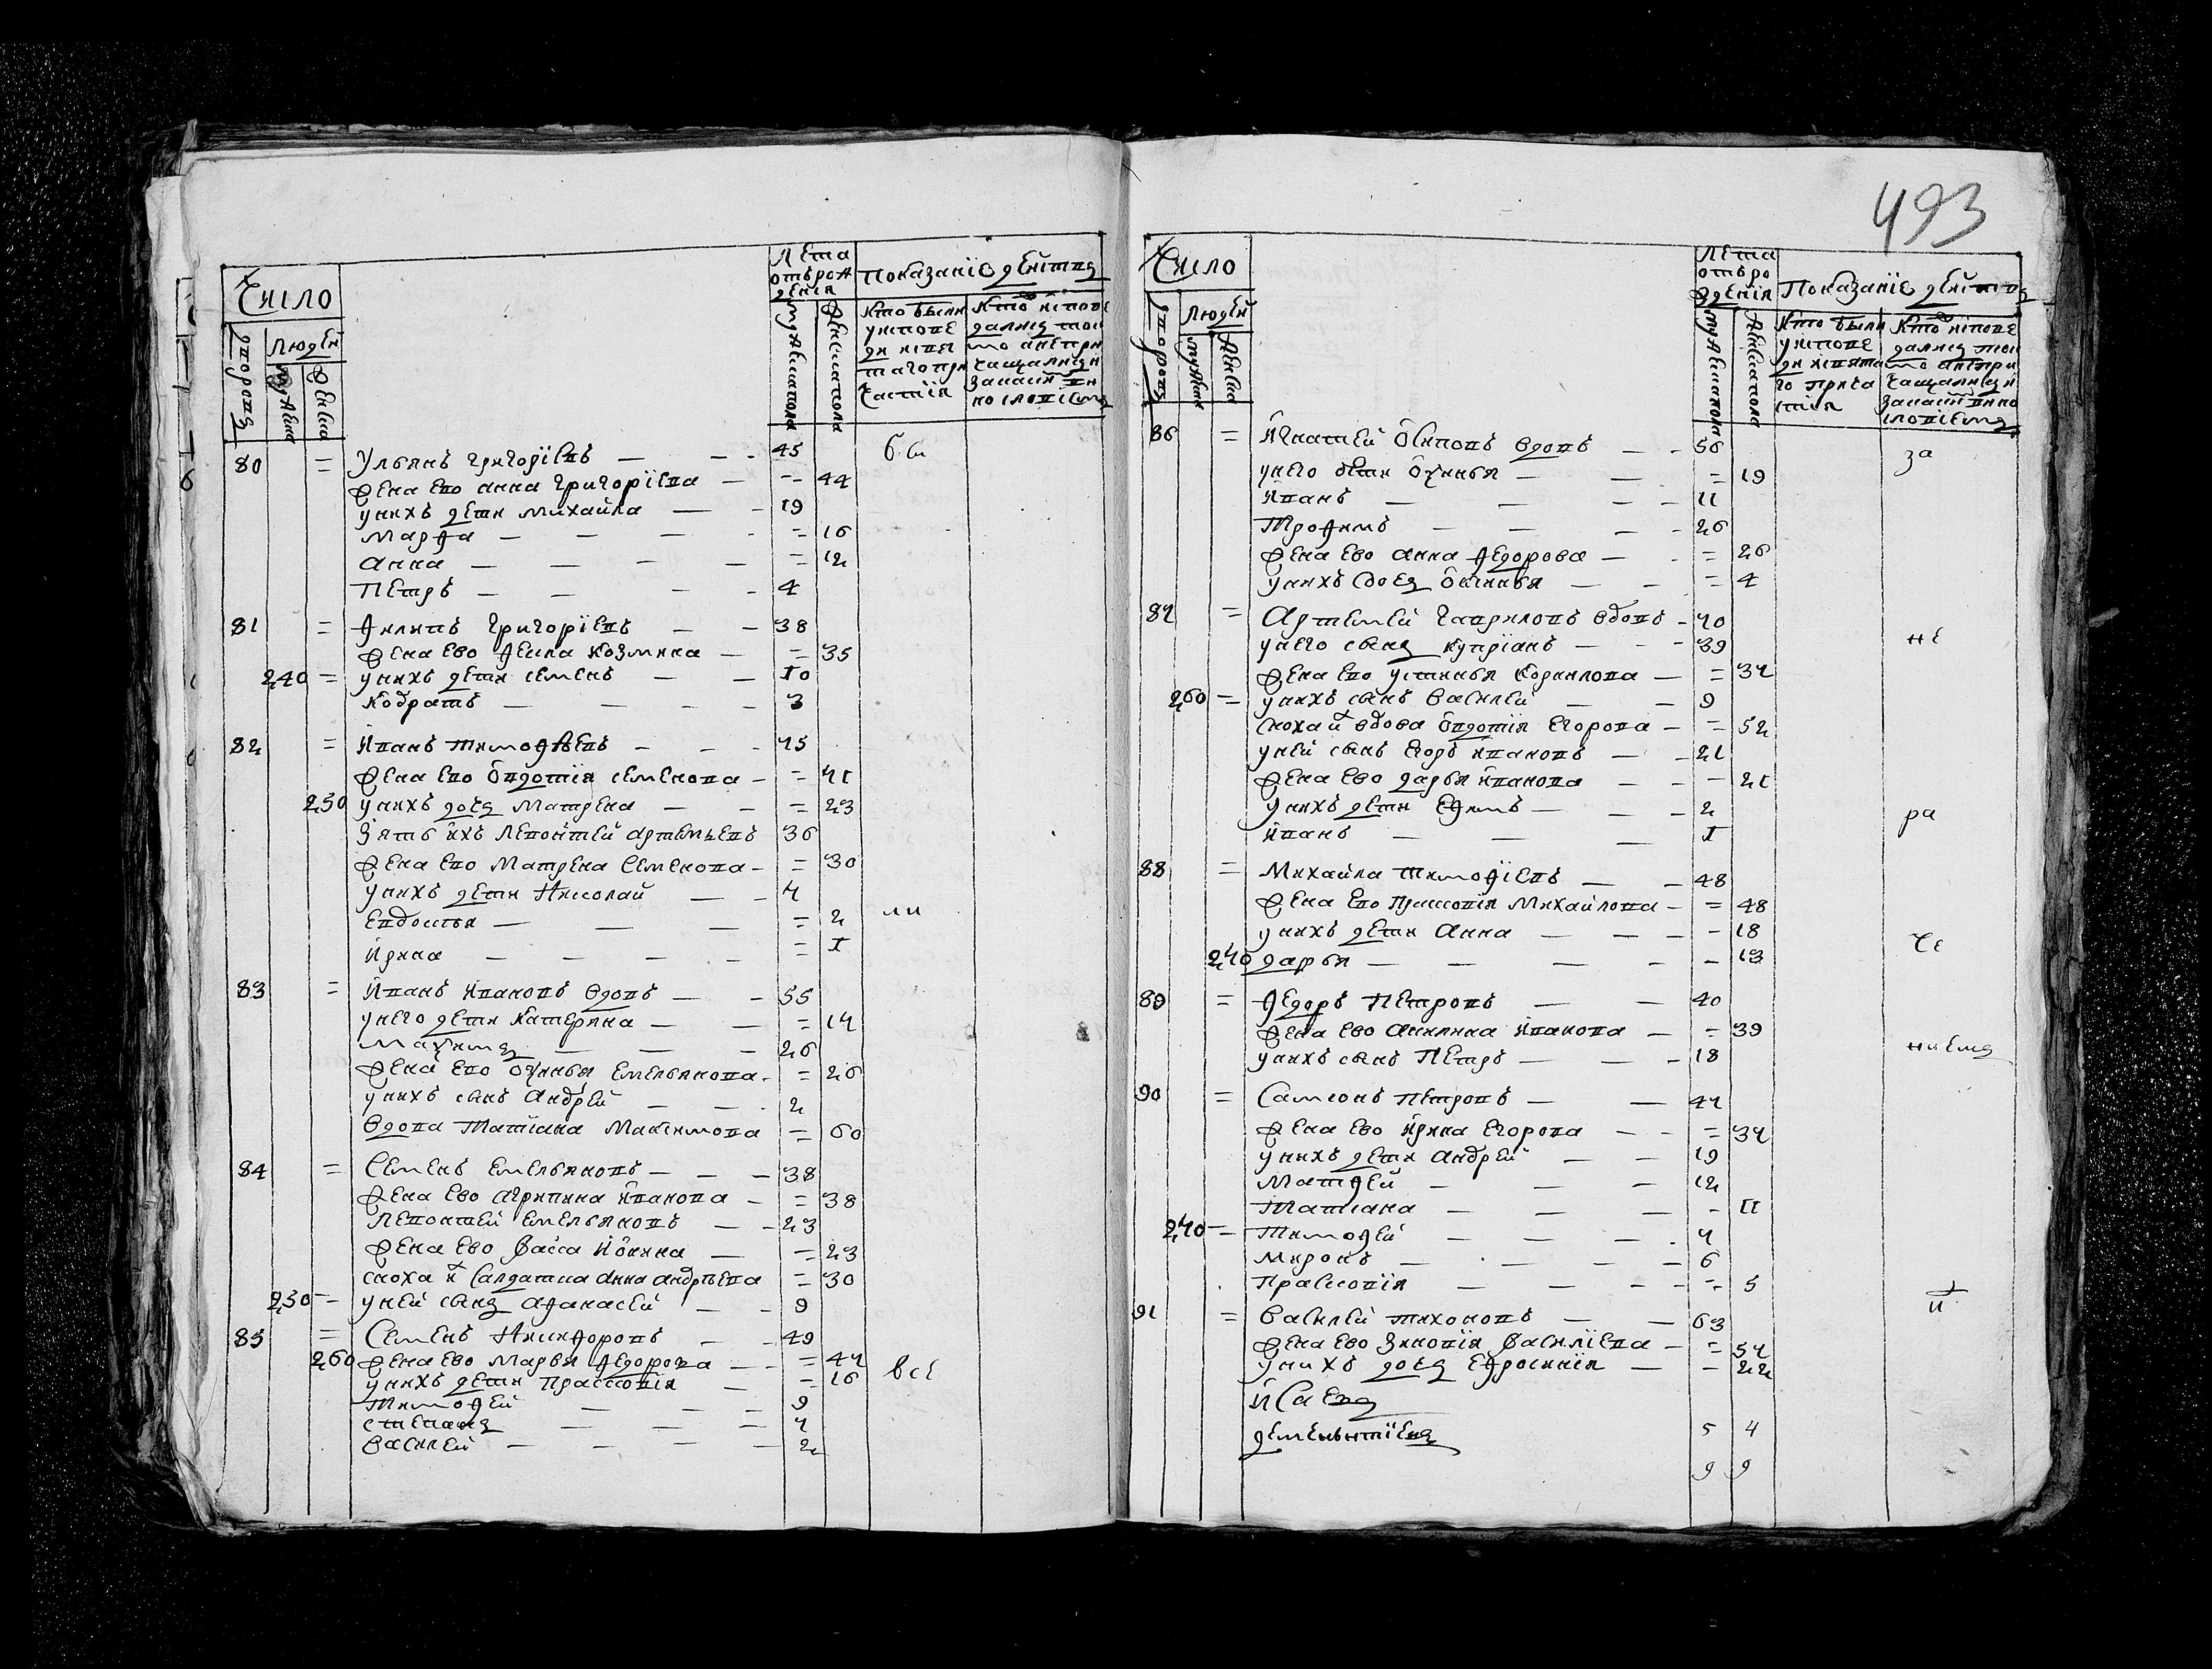 493
Число
дворовъ
людей
мужеска
женска
Лета
отърож
дения
мужескапола
женскапола
Показанїе действъ
кто были
уисповѣ
ди исвя
таго при
частїя
кто исповѣ
дались тои
мо анепри
чащались и
закаким ви
но словїемъ
80 = Ульянъ Григорїевъ — - - 45
жена ево анна Григорїева — -- 44
унихъ дети Михайла — - 19
Марфа — — — - = 16
анна — — — — = 12
Петръ — — - - 4
бы
81 = Филипъ Григорїевъ — — 38
жена ево Фекла Козмина — = 35
240 = унихъ дети семенъ — — 10
Кодратъ — — - - 3
82 = Иванъ тимофѣевъ — - - 45
жена ево Овдотїя семенова - = 41
250 унихъ дочь Матрена — — = 23
Зять ихъ Левонтей артемьевъ 36
жена ево Матрена Семенова - = 30
унихъ дети Николай — - 4
Евдокия — — — = 2
ли
Ирина — — — - = 1
83 = Иванъ ивановъ вдовъ — - 55
унего дети Катерина — — = 14
Мазимъ — — — 26
жена ево Офимья Емельянова - = 26
унихъ сынъ Андрей — — - 2
Вдова Татиана Максимова = 60
84 = Семенъ Емельяновъ — - — 38
жена ево агрипина иванова — = 38
Левонтей Емельяновъ — - 23
жена ево Васса Иовина — = 23
сноха и салдатка анна андрѣева = 30
250 = уней сынъ афанасей — - 9
85 = Семенъ Никифоровъ — - 49
260 жена ево Марья Федорова — - = 44
унихъ дети Прасковїя — = 16
все
Тимофей — — - 9
степанъ — — — 4
Василей — — — — 2
Число
дворовъ
людей
мужеска
женска
Лета
отъро
ждения
мужескапола
женскапола
Показанїе действъ
кто были
уиспове
ди исвята
го прича
стїя
кто испове
дались тои
мо анепри
чащались и
закаким вино
словїемъ
86 = Игнатей Осиповъ вдовъ — - 56
за
унего дети Офимья — — = 19
Иванъ — — — - 11
Трофимъ — — - - 26
жена ево анна Федорова — - = 26
унихъ дочь — — = 4
87 = Артемей Гавриловъ вдовъ - 70
унего сынъ Куприанъ — - - 39
не
жена ево устинья Корнилова — = 34
260 = унихъ сынъ Василей — — 9
сноха и вдова Овдотїя Егорова — = 52
уней сынъ Егоръ ивановъ — - 21
жена ево дарья Иванова — - - 21
унихъ дети Ефимъ — — - 2
ра
Иванъ — — — 1
88 = Михайла тимофїевъ — — 48
жена ево Прасковїя Михайлова — = 48
унихъ дети Анна — — - - 18
че
240 дарья — — — - - 13
89 = Федоръ Петровъ — — 40
жена ево акилина иванова — = 39
ниемъ
унихъ сынъ Петръ — — - 18
90 = Самсонъ Петровъ — — 44
жена ево Ирина Егорова — - = 34
унихъ дети Андрей — — 19
Матфей — — — 12
Татиана — — — - 11
240 = Тимофей — — — . 4
Миронъ — - - - — 6
Прасковїя — — — - -- 5
и
91 = Василей тихоновъ — — 63
жена ево Зиновїя Василїева — = 54
унихъ дочь Ефросинїя — — 22
Исаева
дементїева
5 4
9 9